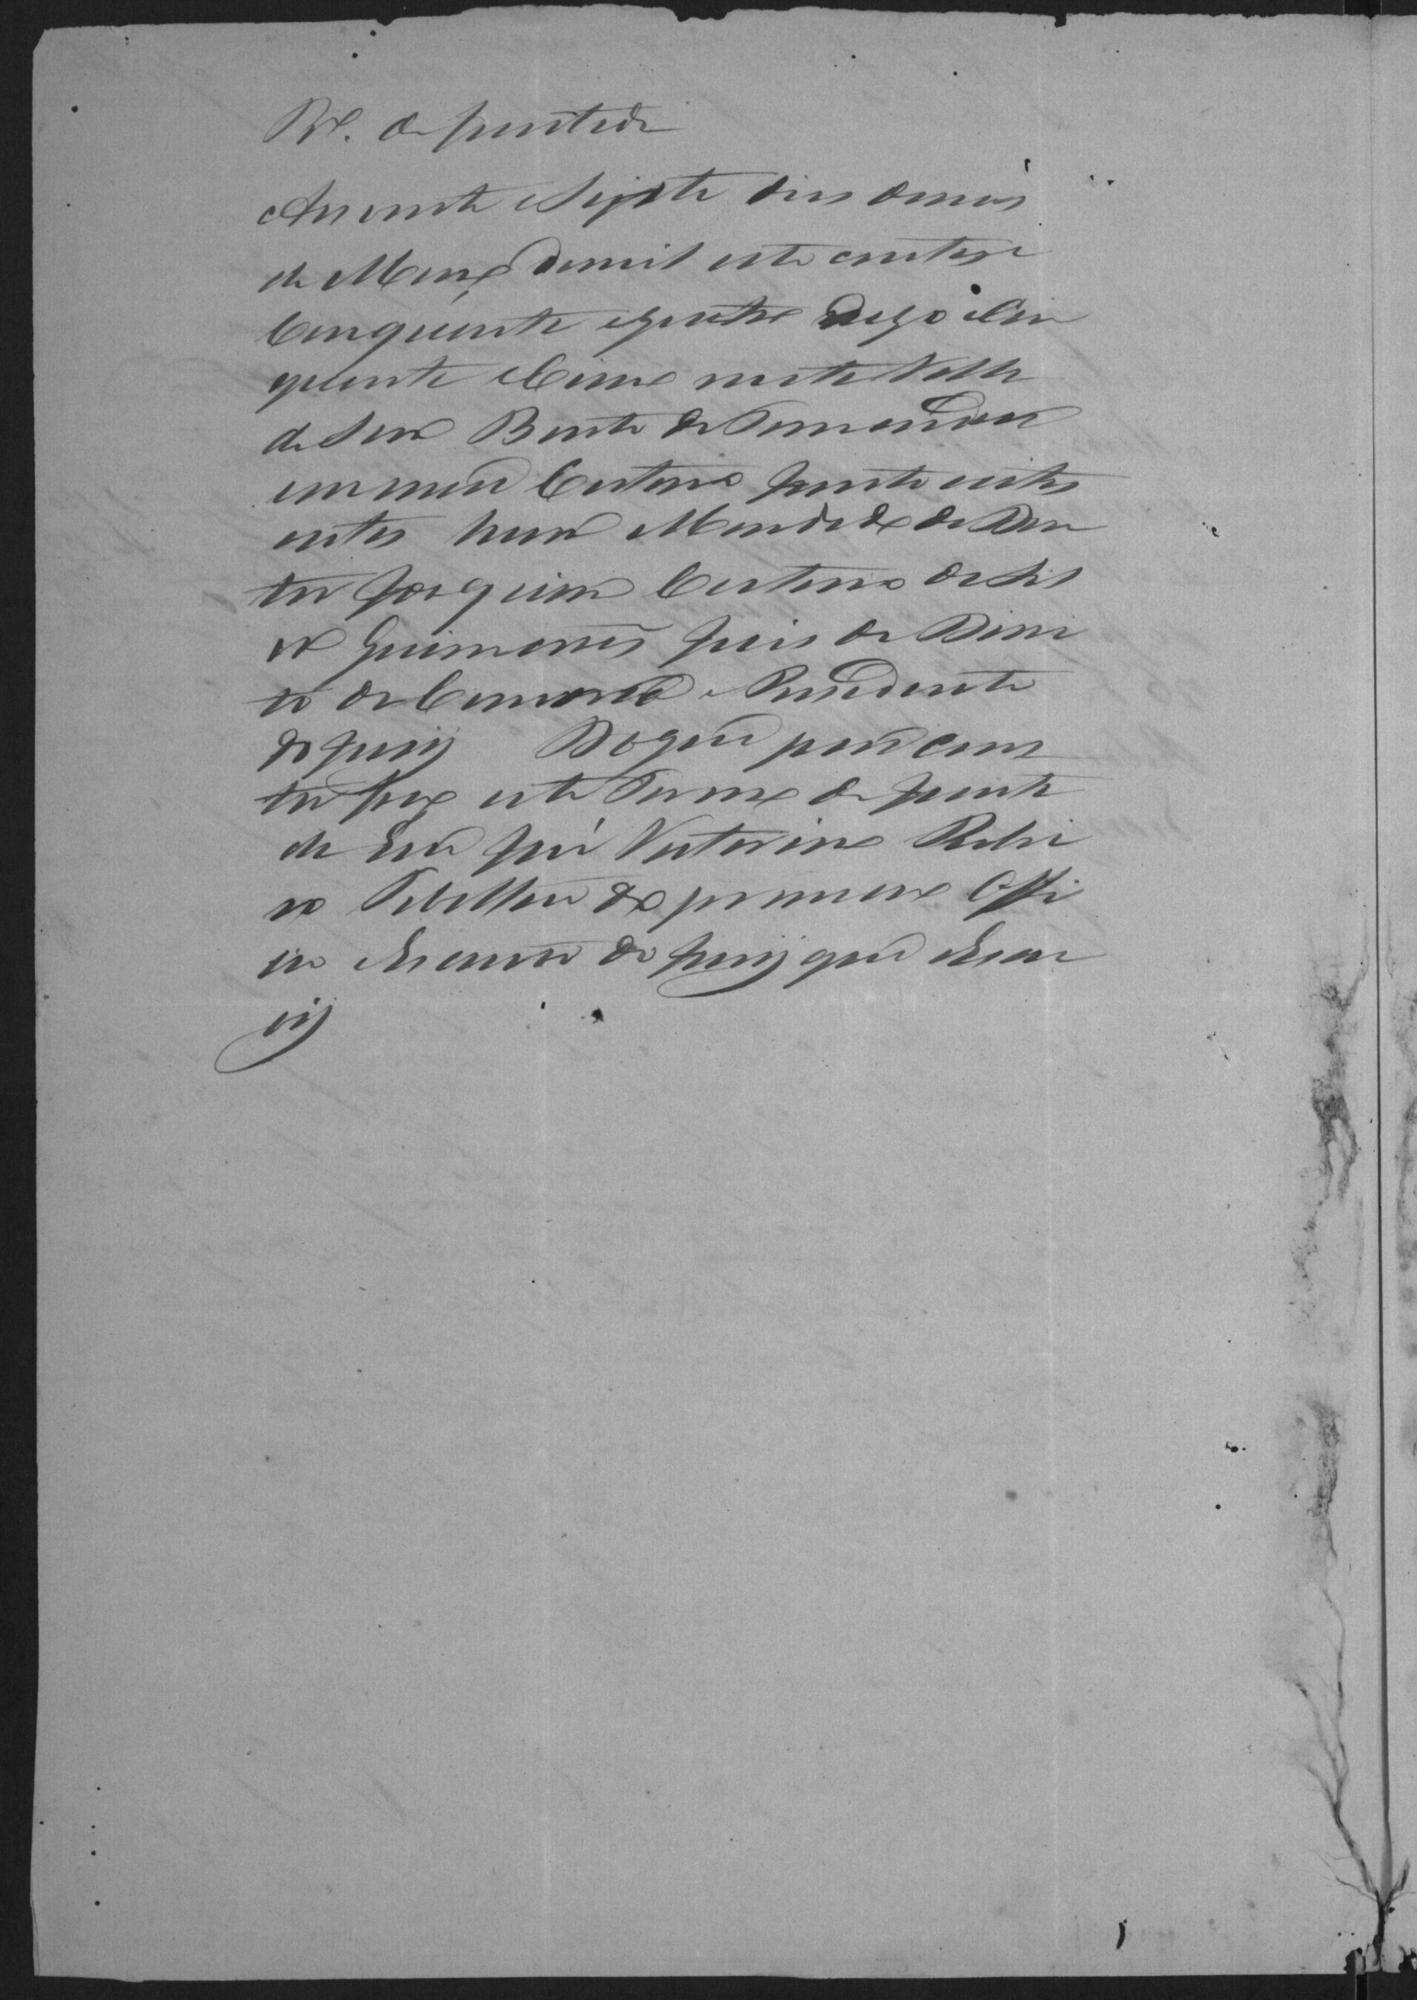 De juntada
Aos vinte e Sepote dias domes
de Março demil oito centos e
Cinquenta equatro digo e Cin
quenta e Cinco nesta Villa
de Sam Bento de Tamandua
em meu Cartorio junto aestes
autos hum Mandado do Dou
tor Joaquim Caetano da Sil
va Guimarães Juis de Direi
to da Comarca e Presidente
do Jurij Do que para cons
tar faço este Termo de junta
da Eu José Victorino Ribei
ro Tabelliam do primeiro Offi
cio Escrivão do Jurij que escre
vij